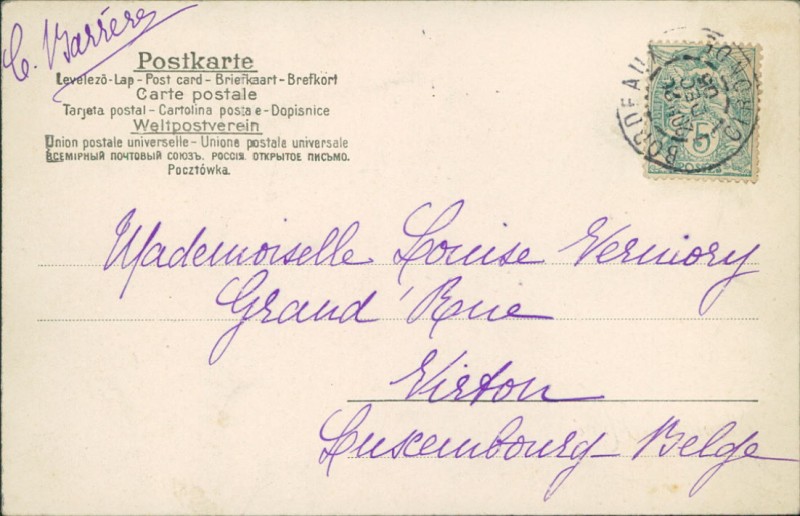 C. Barrère
Postkarte
Levelező-Lap – Post card – Briefkaart – Brefkort
Carte postale
Tarjeta postal – Cartolina postale – Dopisnice
Weltpostverein
Union postale universelle – Unione postale universale
Всемірный почтовый союзъ. россія. открытое письмо.
Pocztówka.
BORDEAUX
GIRONDE
5
Mademoiselle Louise Vermory
Grand' Rue
Virton
Luxembourg – Belge